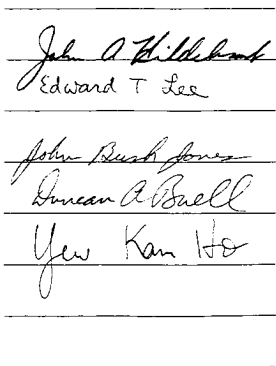 John A Hildebrand
Edward T Lee
John Bush Jones
Duncan A Buell
Yew Kam Ho